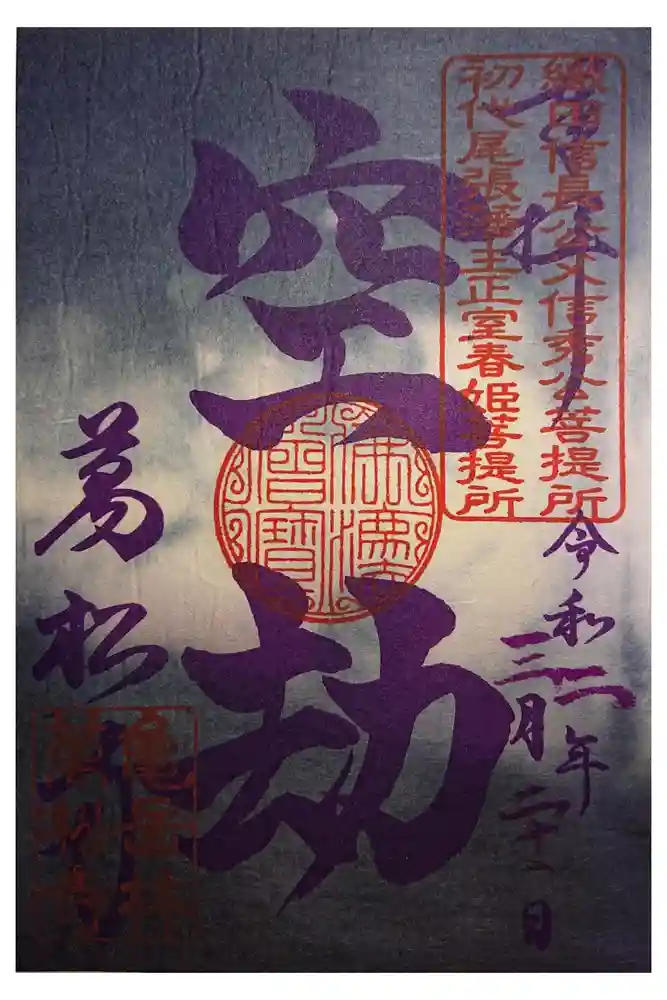 奉拝
織田信長公父信秀公菩提所
初代尾張藩主正室春姫菩提所
令和二年
三月二十一日
空劫
佛法僧寶
萬松寺
亀岳林
萬松寺